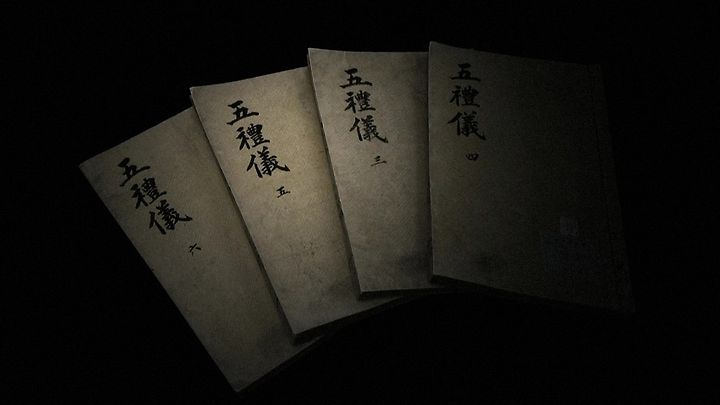 五禮儀 六
五禮儀 五
五禮儀 三
五禮儀 四